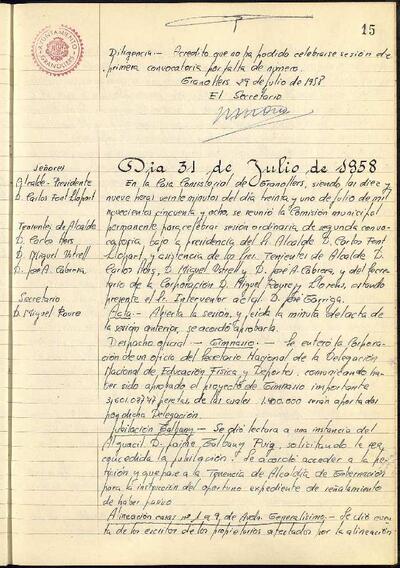 15
AYUNTAMIENTO
GRANOLLERS
Diligencia.- Acredito que no ha podido celebrarse sesión de
primera convocatoria por falta de número.
Granollers 29 de julio de 1958
El Secretario
Señores
Alcalde-Presidente
D. Carlos Font Llopart
Tenientes de Alcalde
D. Carlo Hors
D. Miguel Votrell
D. José A. Cabrera
Secretario
D. Miguel Roure
Dia 31 de Julio de 1958
En la Casa Consistorial de Granollers, siendo las diez y
nueve horas veinte minutos del día treinta y uno de julio de mil
novecientos cincuenta y ocho, se reunió la Comisión municipal
permanente para celebrar sesión ordinaria de segunda convo-
catoria, bajo la presidencia del Sr. Alcalde D. Carlos Font
Llopart, y asistencia de los Sres. Tenientes de Alcalde D.
Carlo Hors, D. Miguel Votrell y D. José A. Cabrera, y del Secre-
tario de la Corporación D. Miguel Roure y Llorens, estando
presente el Sr. Interventor actal. D. José Garriga.
Acta.- Abierta la sesión, y leída la minuta del acta de
la sesión anterior, se acordó aprobarla.
Despacho oficial.- Gimnasio.- Se enteró la Corpora-
ción de un oficio del Secretario Nacional de la Delegación
Nacional de Educación Física y Deportes, comunicando ha-
ber sido aprobado el proyecto de Gimnasio importante
pesetas, de las cuales 1.400.000 serán aportadas
por dicha Delegación.
Jubilación Galbany.- Se dió lectura a una instancia del
Alguacil D. Jaime Galbany Puig, solicitando le sea
concedida la jubilación y se acordó acceder a la pe-
tición y que pase a la Tenencia de Alcaldía de Gobernación
para la instrucción del oportuno expediente de señalamiento
de haber pasivo
Alineación casas nº 1 a 9 de Avda. Generalísimo.- Se dió cuen-
ta de los escritos de los propietarios afectados por la alineación